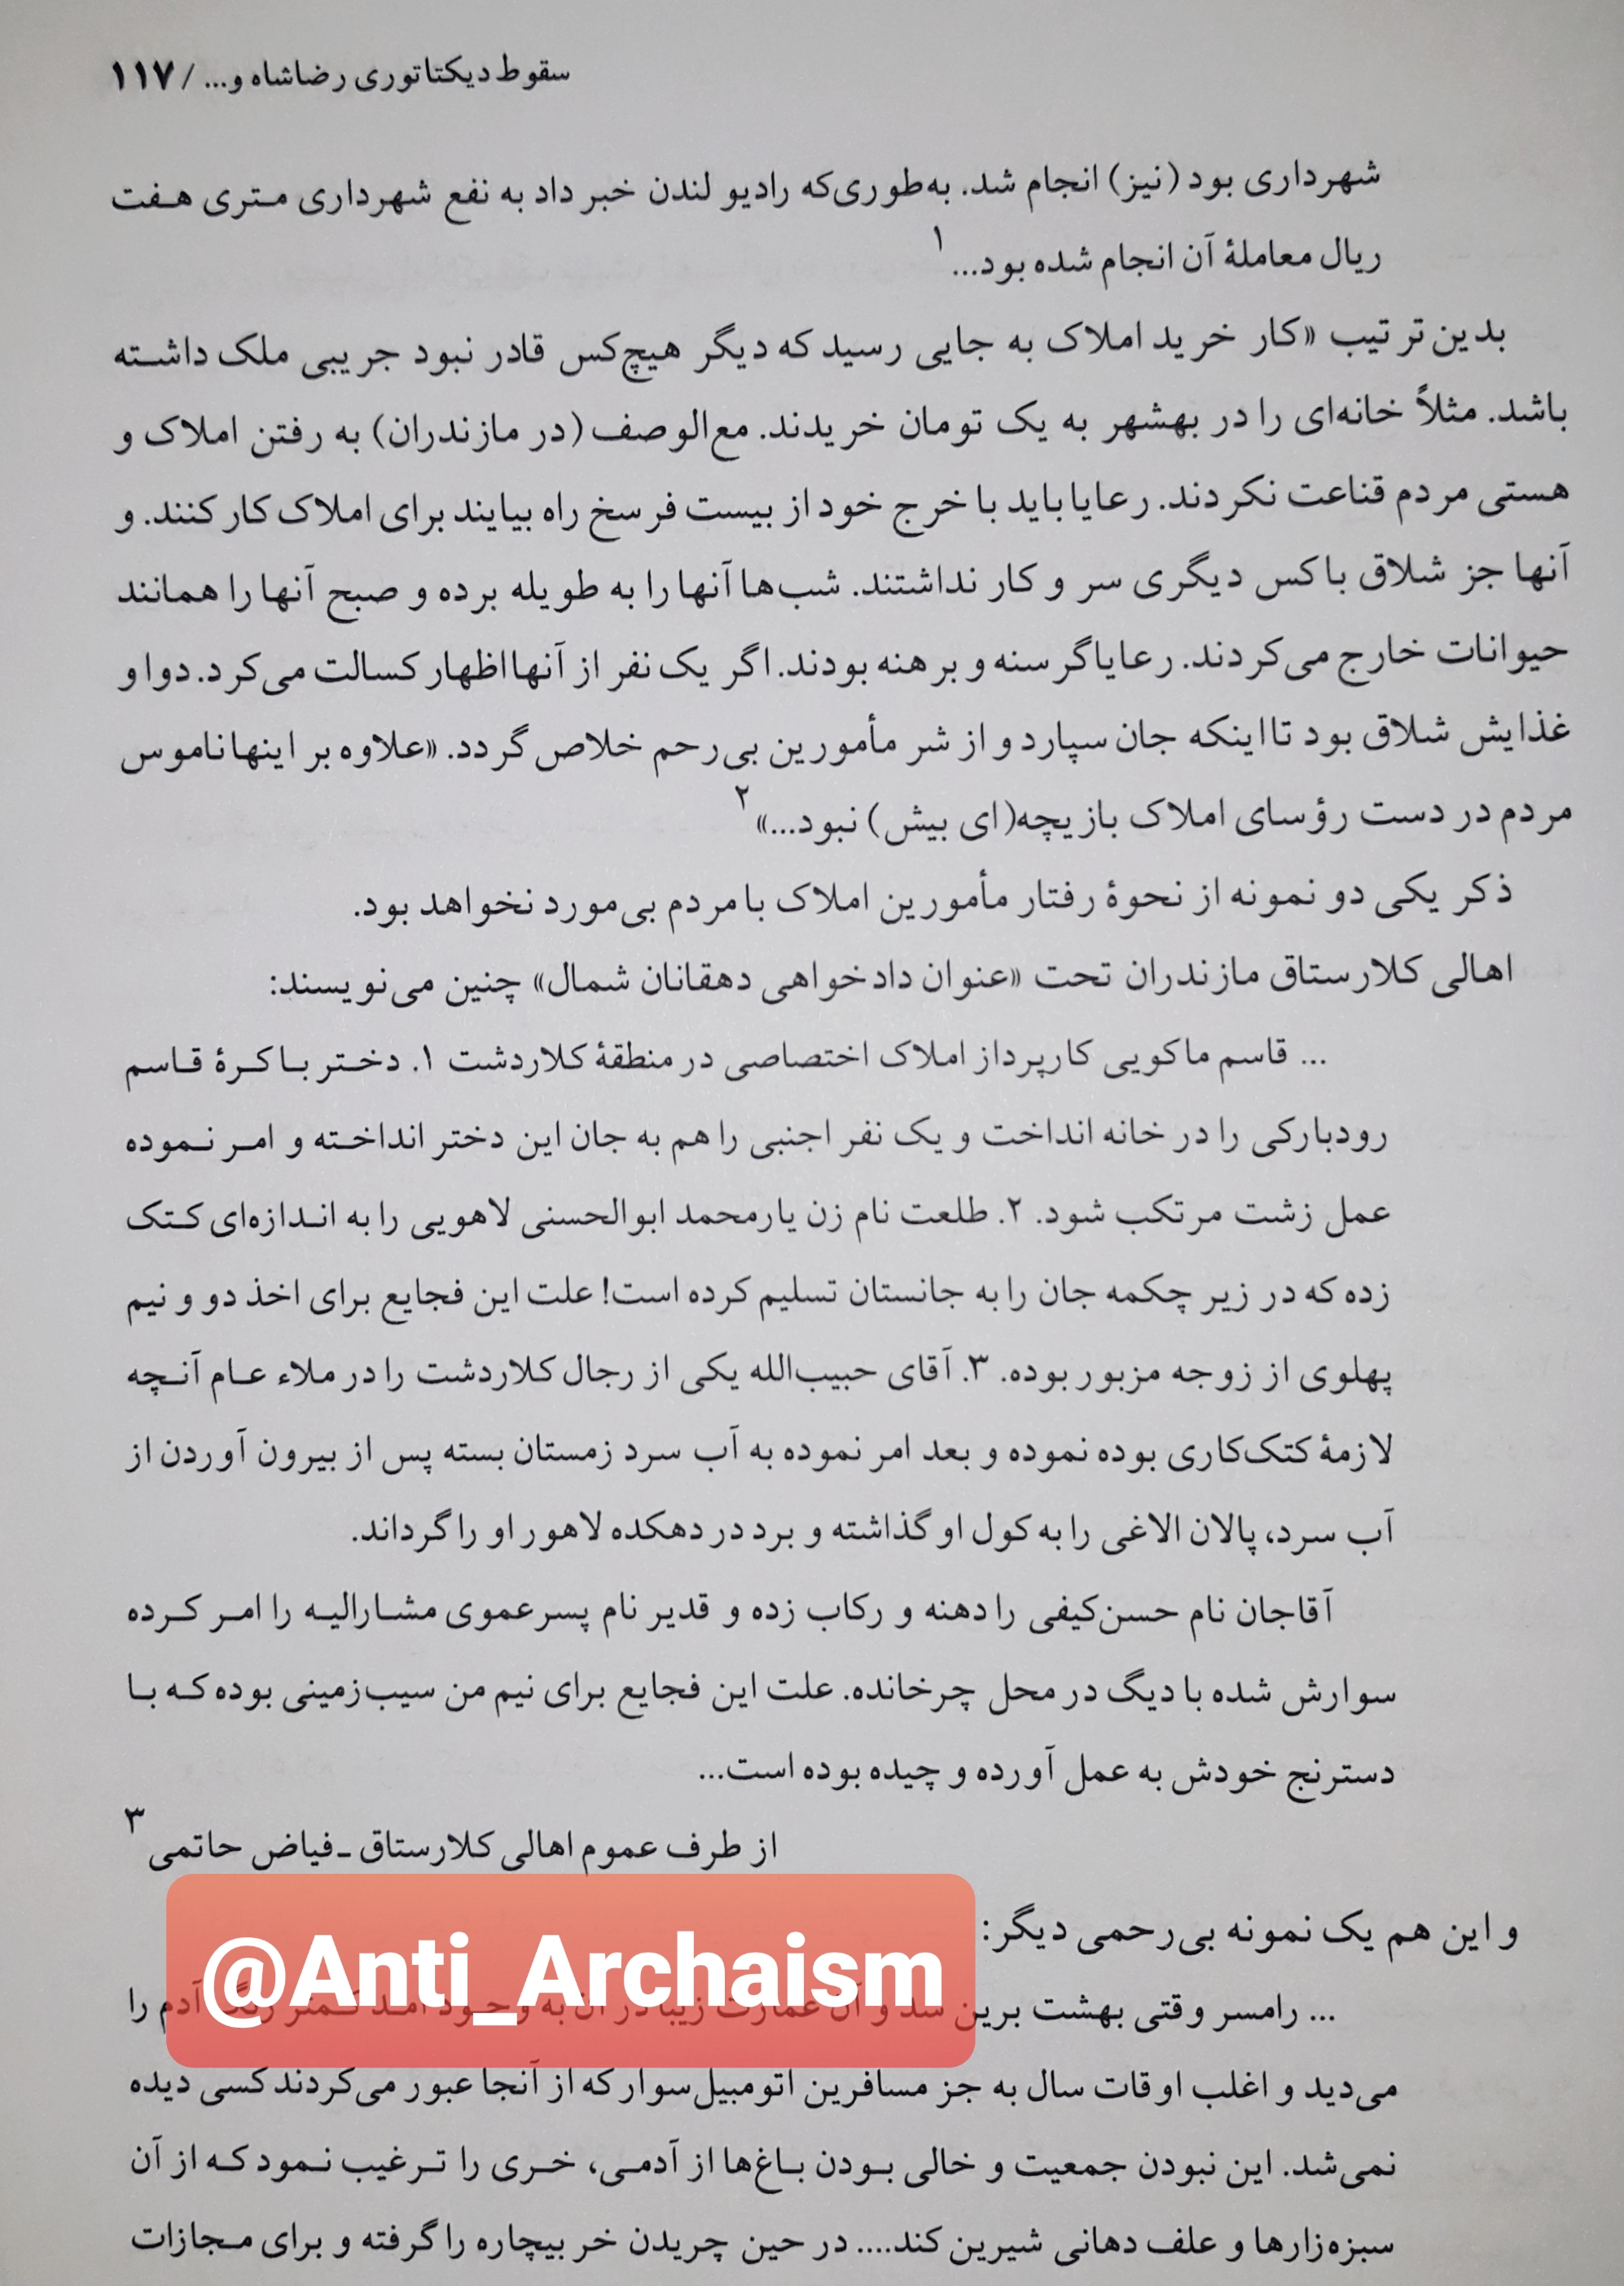 سقوط دیکتاتوری رضاشاه و... / ۱۱۷
شهرداری بود (نیز) انجام شد. به‌طوری‌که رادیو لندن خبر داد به نفع شهرداری متری هفت
ریال معاملهٔ آن انجام شده بود...۱
بدین‌ترتیب «کار خرید املاک به جایی رسید که دیگر هیچ‌کس قادر نبود جریبی ملک داشته
باشد. مثلاً خانه‌ای را در بهشهر به یک تومان خریدند. مع‌الوصف (در مازندران) به رفتن املاک و
هستی مردم قناعت نکردند. رعایا باید با خرج خود از بیست فرسخ راه بیایند برای املاک کار کنند. و
آنها جز شلاق با کس دیگری سر و کار نداشتند. شب‌ها آنها را به طویله برده و صبح آنها را همانند
حیوانات خارج می‌کردند. رعایا گرسنه و برهنه بودند. اگر یک نفر از آنها اظهار کسالت می‌کرد. دوا و
غذایش شلاق بود تا اینکه جان سپارد و از شر مأمورین بی‌رحم خلاص گردد. «علاوه بر اینها ناموس
مردم در دست رؤسای املاک بازیچه(ای بیش) نبود...»۲
ذکر یکی دو نمونه از نحوهٔ رفتار مأمورین املاک با مردم بی‌مورد نخواهد بود.
اهالی کلارستاق مازندران تحت «عنوان دادخواهی دهقانان شمال» چنین می‌نویسند:
... قاسم ماکویی کارپرداز املاک اختصاصی در منطقهٔ کلاردشت ۱. دختر باکرهٔ قاسم
رودبارکی را در خانه انداخت و یک نفر اجنبی را هم به جان این دختر انداخته و امر نموده
عمل زشت مرتکب شود. ۲. طلعت نام زن یارمحمد ابوالحسنی لاهویی را به اندازه‌ای کتک
زده که در زیر چکمه جان را به جانستان تسلیم کرده است! علت این فجایع برای اخذ دو و نیم
پهلوی از زوجه مزبور بوده. ۳. آقای حبیب‌الله یکی از رجال کلاردشت را در ملاء عام آنچه
لازمهٔ کتک‌کاری بوده نموده و بعد امر نموده به آب سرد زمستان بسته پس از بیرون آوردن از
آب سرد، پالان الاغی را به کول او گذاشته و برد در دهکده لاهور او را گرداند.
آقاجان نام حسن‌کیفی را دهنه و رکاب زده و قدیر نام پسرعموی مشارالیه را امر کرده
سوارش شده با دیگ در محل چرخانده. علت این فجایع برای نیم من سیب‌زمینی بوده که با
دسترنج خودش به عمل آورده و چیده بوده است...
از طرف عموم اهالی کلارستاق ـ فیاض حاتمی۳
و این هم یک نمونه بی‌رحمی دیگر:
@Anti_Archaism
... رامسر وقتی بهشت برین شد و آن عمارت زیبا در آن به وجود آمد کمتر رنگ آدم را
می‌دید و اغلب اوقات سال به جز مسافرین اتومبیل‌سوار که از آنجا عبور می‌کردند کسی دیده
نمی‌شد. این نبودن جمعیت و خالی بودن باغ‌ها از آدمی، خری را ترغیب نمود که از آن
سبزه‌زارها و علف دهانی شیرین کند.... در حین چریدن خر بیچاره را گرفته و برای مجازات